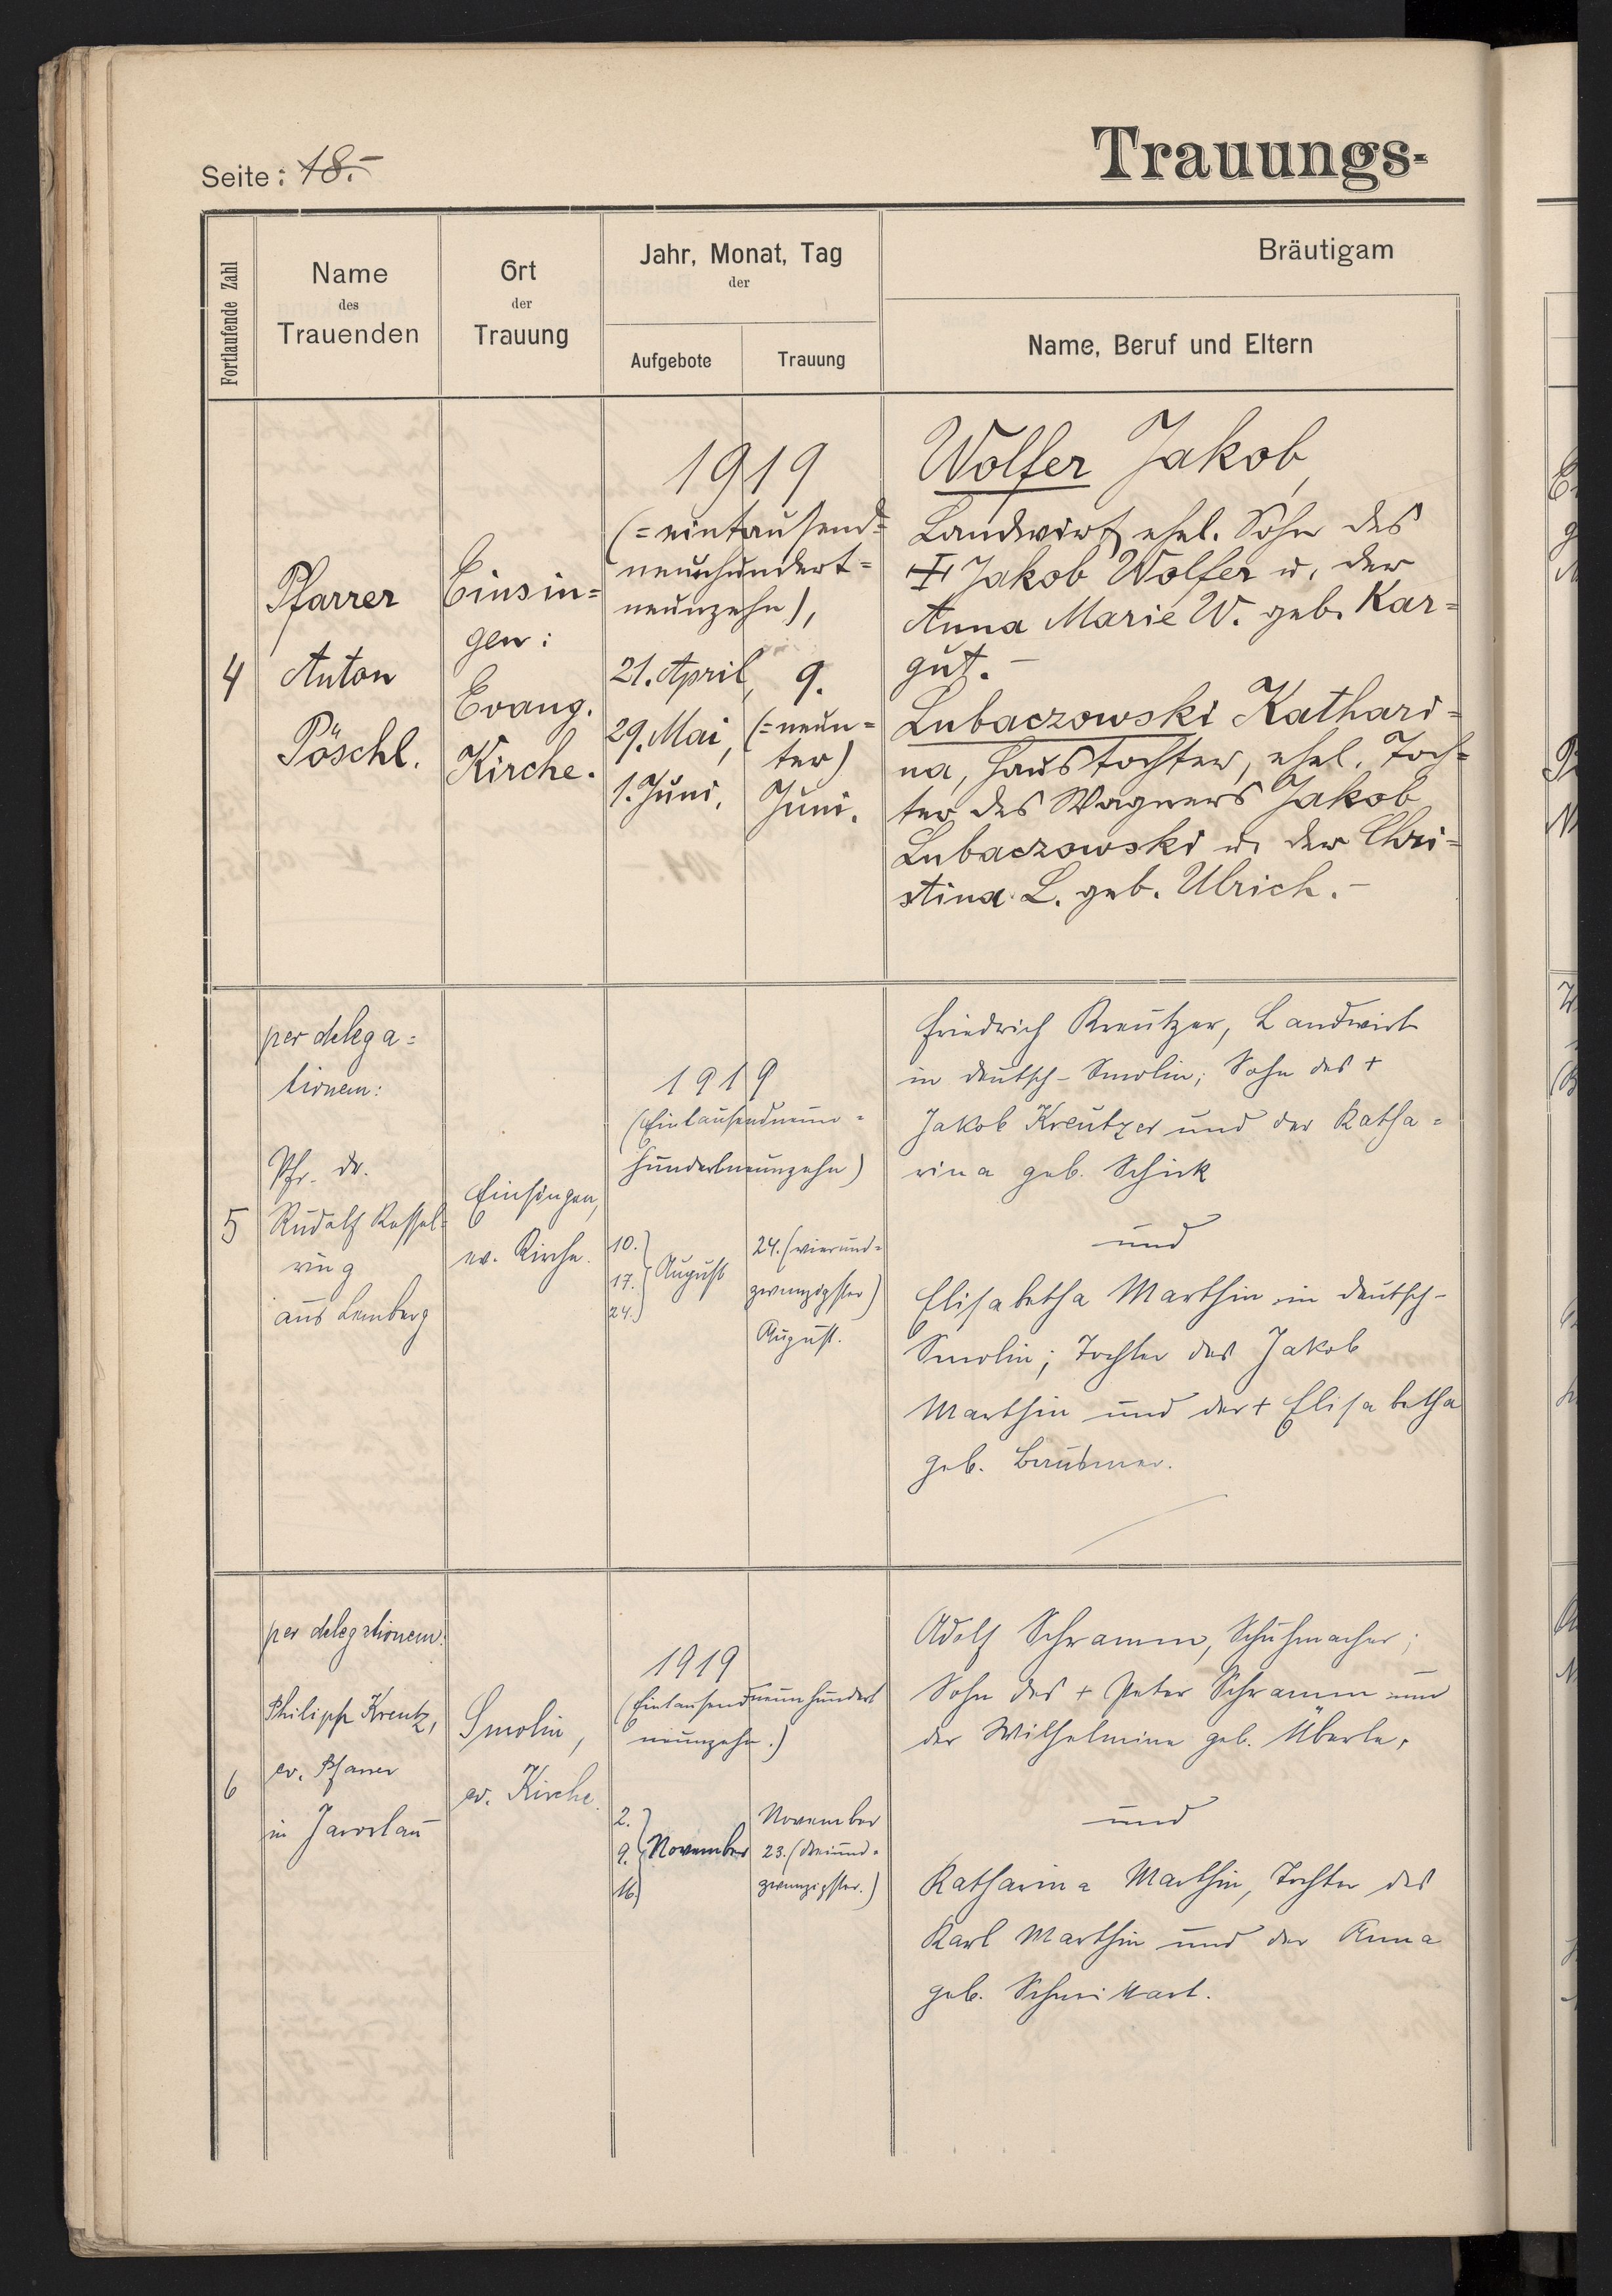 Seite: 18.-
Trauungs-
Fortlaufende Zahl
Name
des
Trauenden
Ort
der
Trauung
Jahr, Monat, Tag
der
Aufgebote
Trauung
Bräutigam
Name, Beruf und Eltern
4
Pfarrer
Anton
Pöschl.
Einsin=
gen:
Evang.
Kirche.
1919
(=eintausend=
neunhundert=
neunzehn),
21. April,
29. Mai,
1. Juni.
9.
(=neun=
ter)
Juni.
Wolfer Jakob,
Landwirt, ehel. Sohn des
† Jakob Wolfer u. der
Anna Marie W. geb. Kar=
gut.-
Lubaczowski Kathari=
na, Haustochter, ehel. Toch=
ter des Wagners Jakob
Lubaczowski u. der Chri=
stina L. geb. Ulrich.-
5
per delega=
tionem:
Pfr. Dr.
Rudolf Kessel=
ring
aus Lemberg
Einsingen,
ev. Kirche.
1919
(Eintausendneun=
hundertneunzehn)
10.
17.
24.
August
24. (vierund=
zwanzigster)
August.
Friedrich Kreutzer, Landwirt
in Deutsch-Smolin; Sohn des +
Jakob Kreutzer und der Katha=
rina geb. Schick
und
Elisabetha Marthin in Deutsch-
Smolin; Tochter des Jakob
Marthin und der + Elisabetha
geb.
6
per delegationem:
Philipp Kreutz,
ev. Pfarrer
in Jaroslau
Smolin,
ev. Kirche.
1919
(Eintausendneunhundert
neunzehn.)
2.
9.
16.
November
November
23. (dreiund=
zwanzigster.)
Adolf Schramm, Schuhmacher;
Sohn des + Peter Schramm und
der Wilhelmine geb. Überle,
und
Katharina Marthin, Tochter des
Karl Marthin und der Anna
geb.